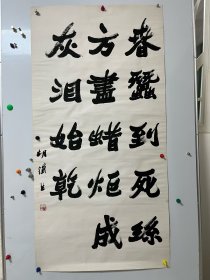 春蠶到死絲
方盡蜡炬成
灰泪始乾